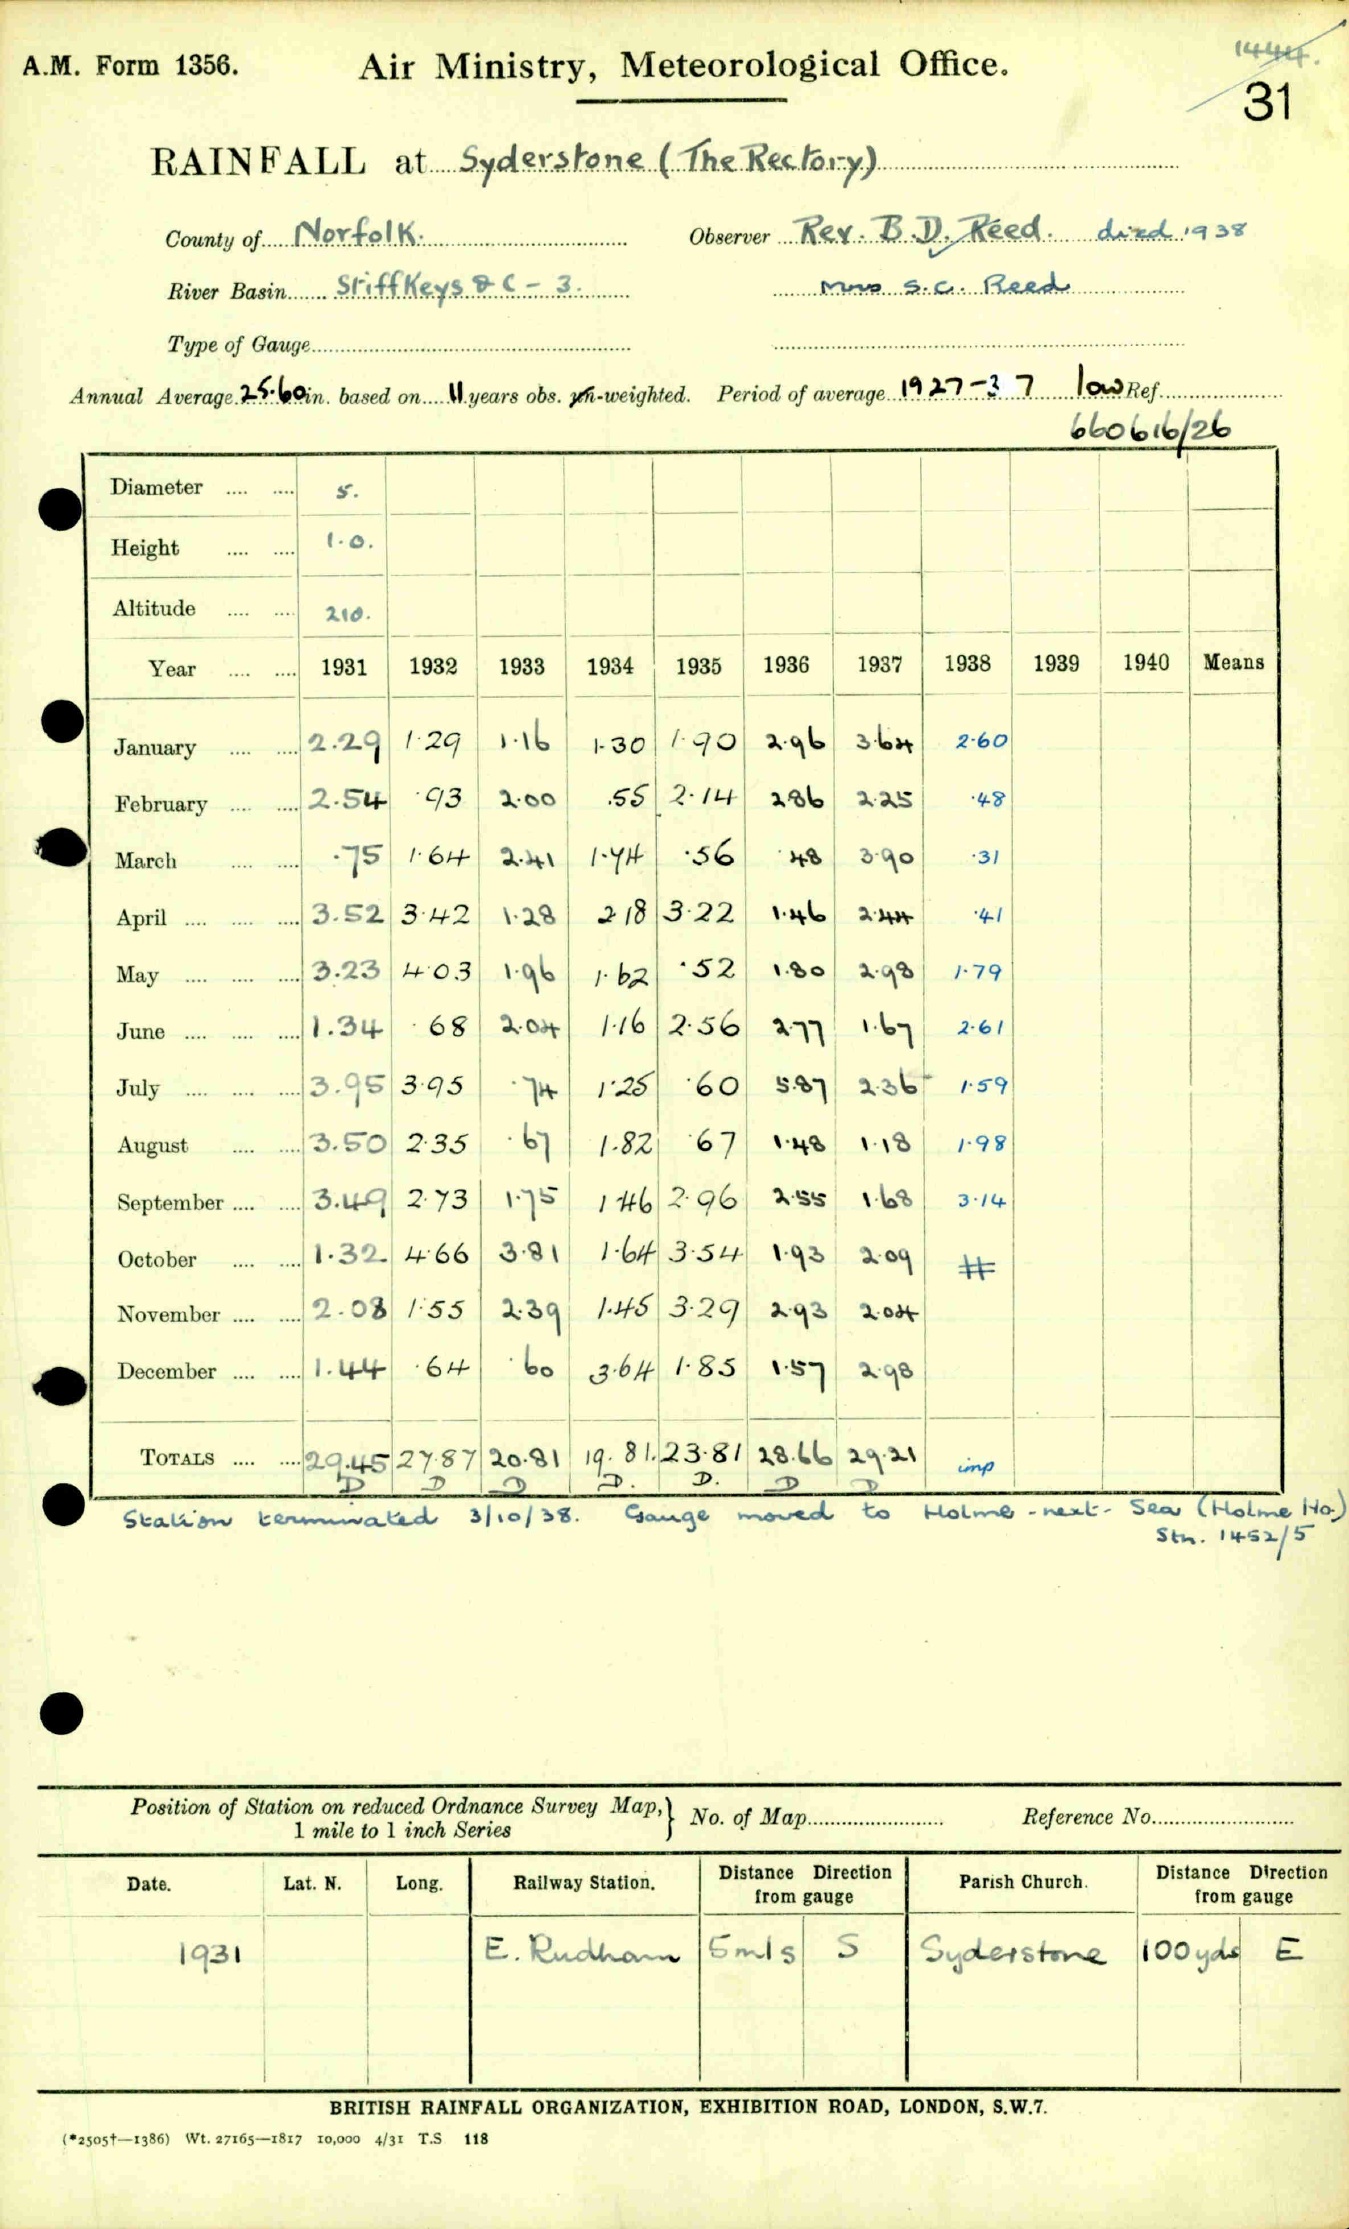 1444.
A.M. Form 1356. Air Ministry, Meteorological Office.
31
RAINFALL at Syderstone (The Rectory)
County of Norfolk. Observer Rev. B.D. Reed. died 1938
River Basin Stiffkeys & C - 3. Mrs S.C. Reed
Type of Gauge
Annual Average 25.60 in. based on 11 years obs. un-weighted. Period of average 1927-37 low Ref.
660616/26
Diameter .... .... 5.
Height .... .... 1.0.
Altitude .... .... 210.
Year .... .... 1931 1932 1933 1934 1935 1936 1937 1938 1939 1940 Means
January .... .... 2.29 1.29 1.16 1.30 1.90 2.96 3.64 2.60
February .... .... 2.54 .93 2.00 .55 2.14 2.86 2.25 .48
March .... .... .75 1.64 2.41 1.74 .56 .48 3.90 .31
April .... .... .... 3.52 3.42 1.28 2.18 3.22 1.46 2.44 .41
May .... .... .... 3.23 4.03 1.96 1.62 .52 1.80 2.98 1.79
June .... .... .... 1.34 .68 2.04 1.16 2.56 2.77 1.67 2.61
July .... .... .... 3.95 3.95 .74 1.25 .60 5.87 2.36 1.59
August .... .... 3.50 2.35 .67 1.82 .67 1.48 1.18 1.98
September .... .... 3.49 2.73 1.75 1.46 2.96 2.55 1.68 3.14
October .... .... 1.32 4.66 3.81 1.64 3.54 1.93 2.09 #
November .... .... 2.08 1.55 2.39 1.45 3.29 2.93 2.04
December .... .... 1.44 .64 .60 3.64 1.85 1.57 2.98
TOTALS .... .... 29.45 27.87 20.81 19.81. 23.81 28.66 29.21 imp
D D D D. D. D D
Station terminated 3/10/38. Gauge moved to Holme-next-Sea (Holme Ho.)
Stn. 1452/5
Position of Station on reduced Ordnance Survey Map, } No. of Map Reference No.
1 mile to 1 inch Series
Date. Lat. N. Long. Railway Station. Distance Direction from gauge Parish Church. Distance Direction from gauge
1931 E. Rudham 5 mls S Syderstone 100 yds E
BRITISH RAINFALL ORGANIZATION, EXHIBITION ROAD, LONDON, S.W.7.
(*2505†—1386) Wt. 27165—1817 10,000 4/31 T.S 118